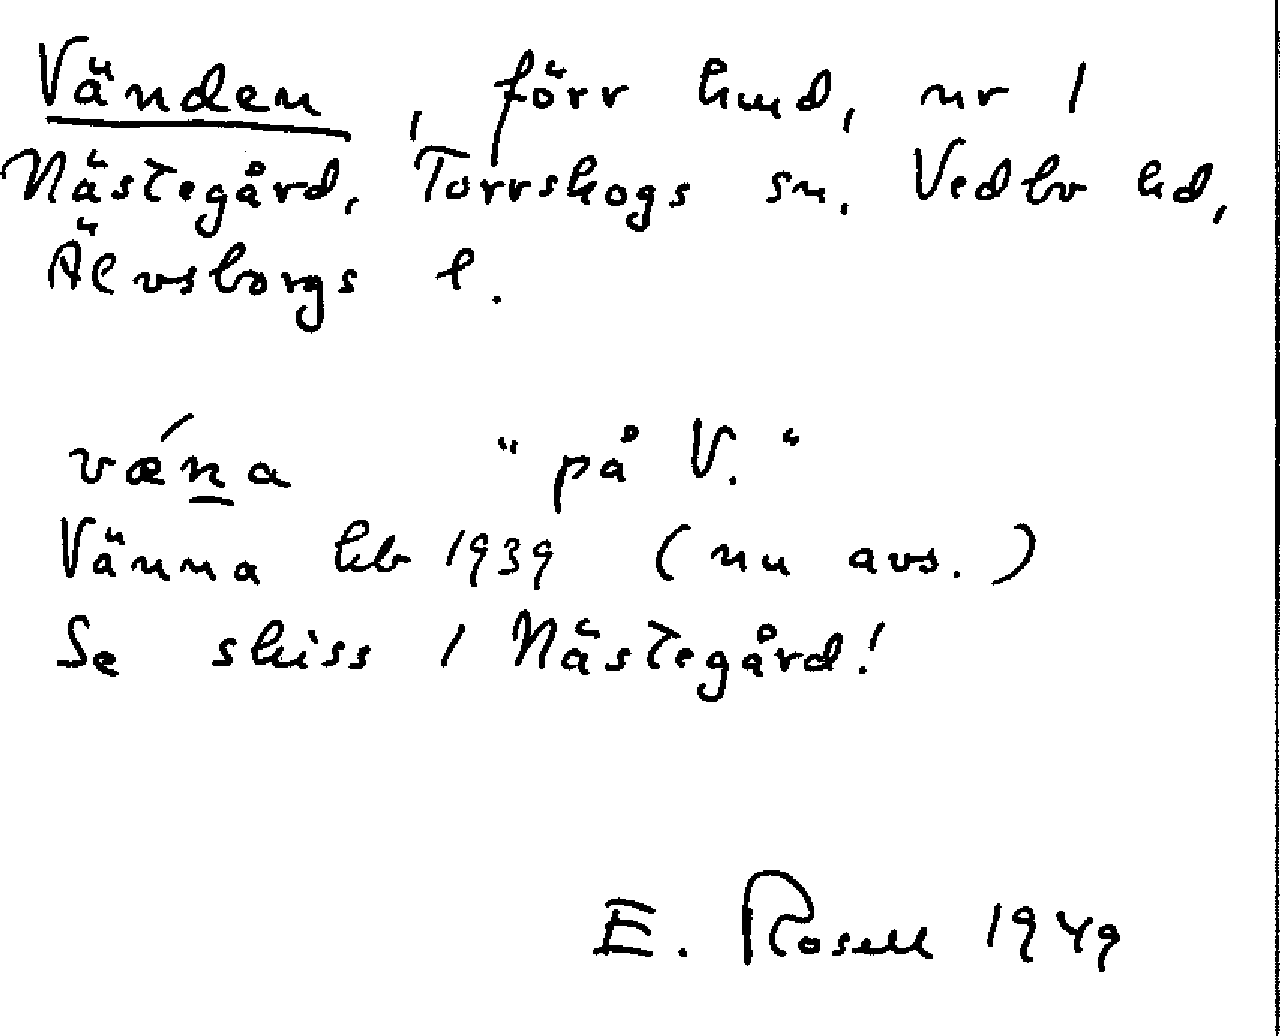 Vänden, förr hmd, nr 1
Nästegård, Torrskogs sn. Vedbo hd,
Älvsborgs l.
vǽna "på V."
Vänna hb 1939 (nu avs.)
Se skiss / Nästegård!
E. Rosell 1949